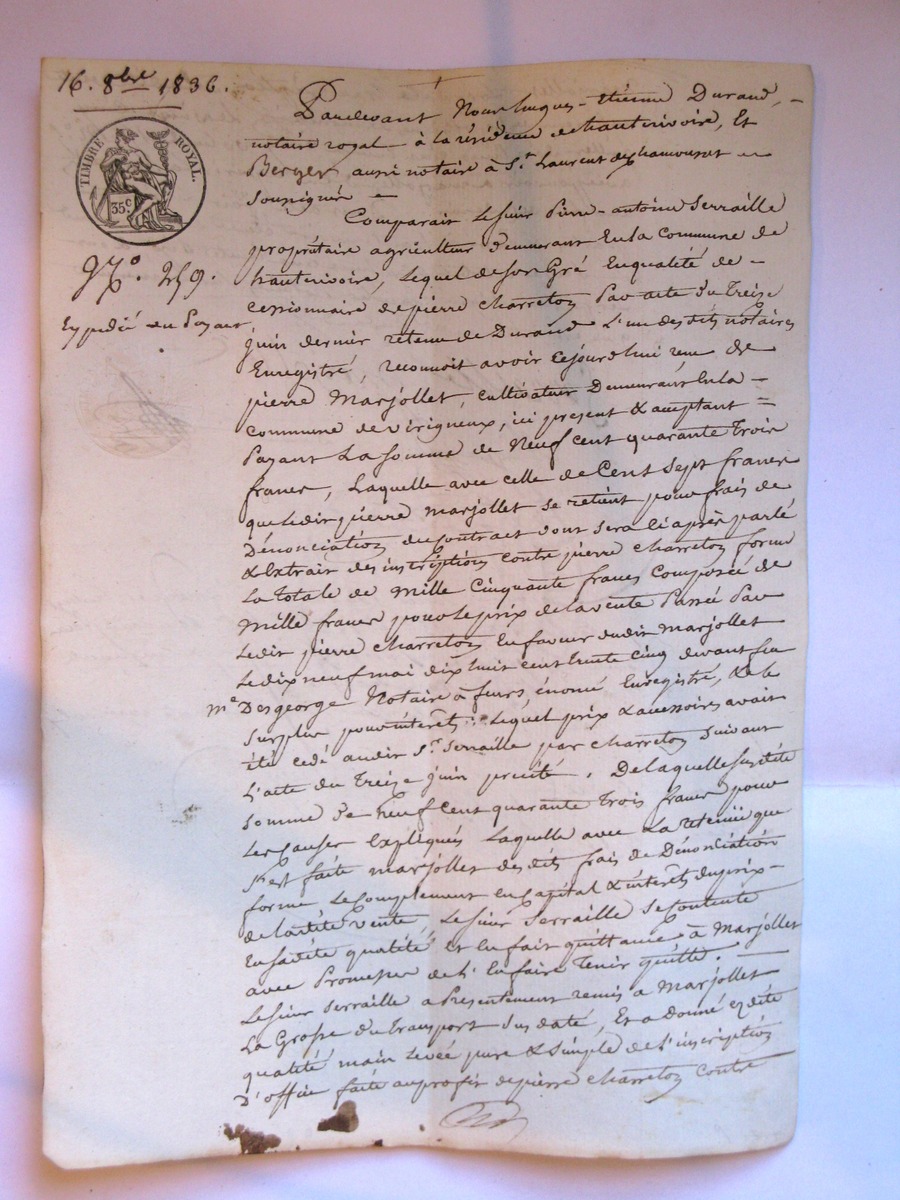 16. 8bre 1836.
TIMBRE ROYAL.
35 c.
No. 259.
Expédié au Payant
Pardevant Nous hugues-étienne Durand, -
notaire royal à la résidence de hauterivoire, Et
Berger aussi notaire à St. Laurent de chamousset
soussignés -
Comparait Le sieur Pierre-antoine Serraille
propriétaire agriculteur demeurant En la Commune de
hauterivoire, Lequel de son Gré En qualité de -
cessionnaire de pierre Charreton Par acte du Treize
juin dernier retenu de Durand L'un des dits notaires
Enregistré, reconnoit avoir Cejourd'hui reçu de
pierre Marjollet, cultivateur Demeurant En la -
commune de virigneux, ici present & acceptant =
Payant La somme de Neuf cent quarante Trois
francs, Laquelle avec celle de Cent Sept francs
que Ledit pierre Marjollet se retient pour frais de
Dénonciation du Contract dont sera ci après parlé
& Extrait des inscriptions contre pierre Charreton forme
La Totale de Mille Cinquante francs Composée de
Mille francs pour le prix de la vente Passée Par
Ledit pierre Charreton En faveur dudit Marjollet
Le dix neuf mai dix huit cent trente Cinq devant feu
Me Desgeorge Notaire à feurs, énoncé Enregistré, & le
surplus pour intérêts. Lequel prix & accessoires avait
été cédé audit Sr. Serraille par Charreton suivant
L'acte du Treize juin précité. De laquelle susditte
somme de Neuf Cent quarante Trois francs pour
Les Causes Expliqués Laquelle avec La retenue que
s'est faite Marjollet des dits frais de Dénonciation
forme Le Complement en Capital & intérêts du prix -
de laditte vente Le sieur Serraille se Contente
En saditte qualité et En fait quittance à Marjollet
avec Promesse de L'En faire Tenir quitte.
Le sieur Serraille a Présentement remis a Marjollet
La Grosse du Transport sus daté, Et a donné Ez dite
qualité main Levée pure & simple de L'inscription
D'office faite au profit de pierre Charreton Contre